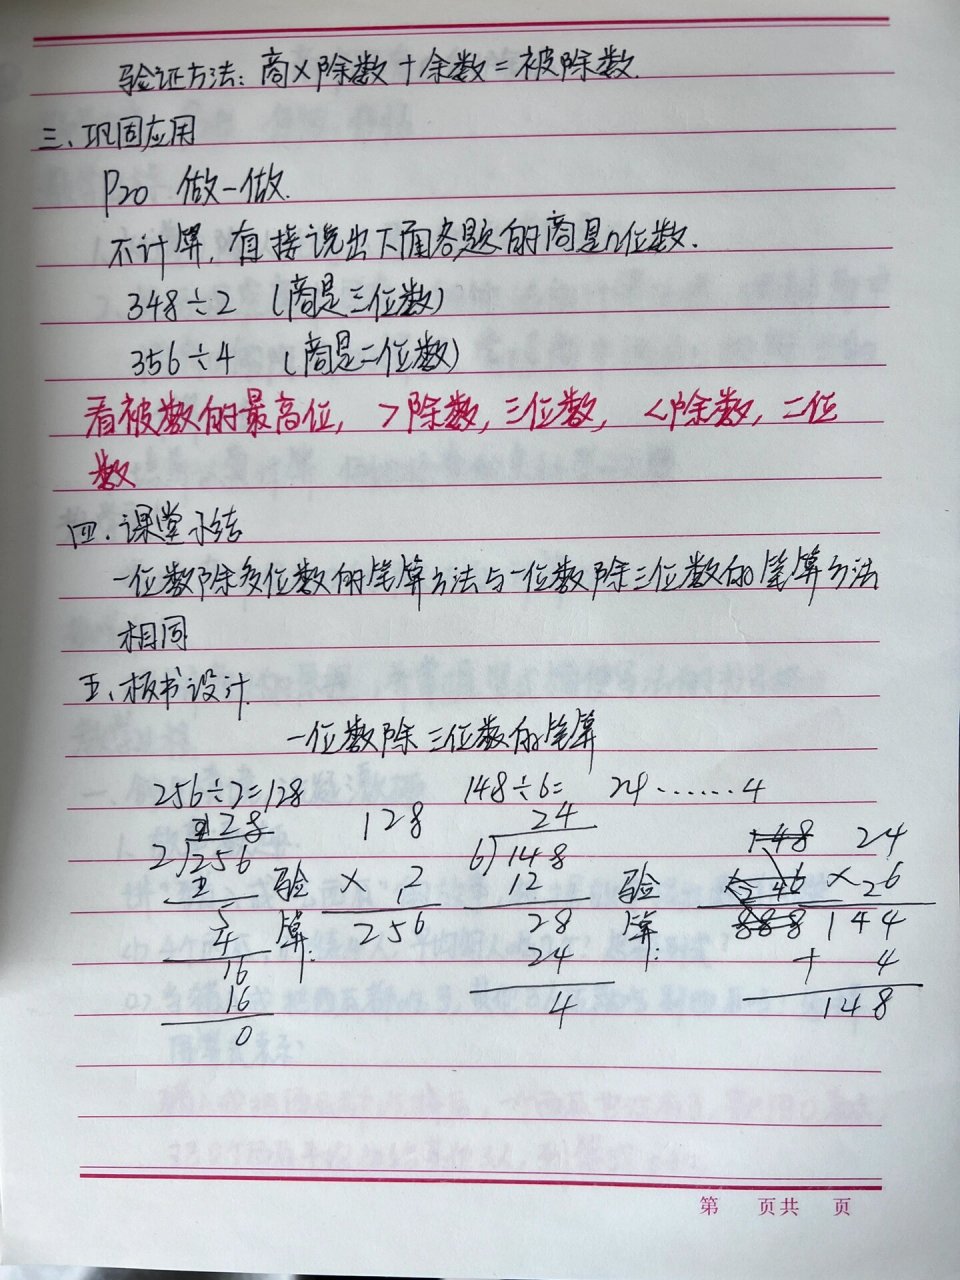 验证方法：商×除数＋余数＝被除数.
三、巩固应用
P20 做一做.
不计算，直接说出下面各题的商是几位数.
348÷2 （商是三位数）
356÷4 （商是二位数）
看被数的最高位，＞除数，三位数，＜除数，二位
数
四.课堂小结
一位数除多位数的笔算方法与一位数除三位数的笔算方法
相同
五、板书设计
一位数除三位数的笔算
256÷2=128 148÷6= 24……4
128 128 24 24
2)256 6)148
2 验 × 2 12 验 ×26
5 算： 256 28 算： 144
4 24 + 4
16 4 148
16
0
第 页共 页